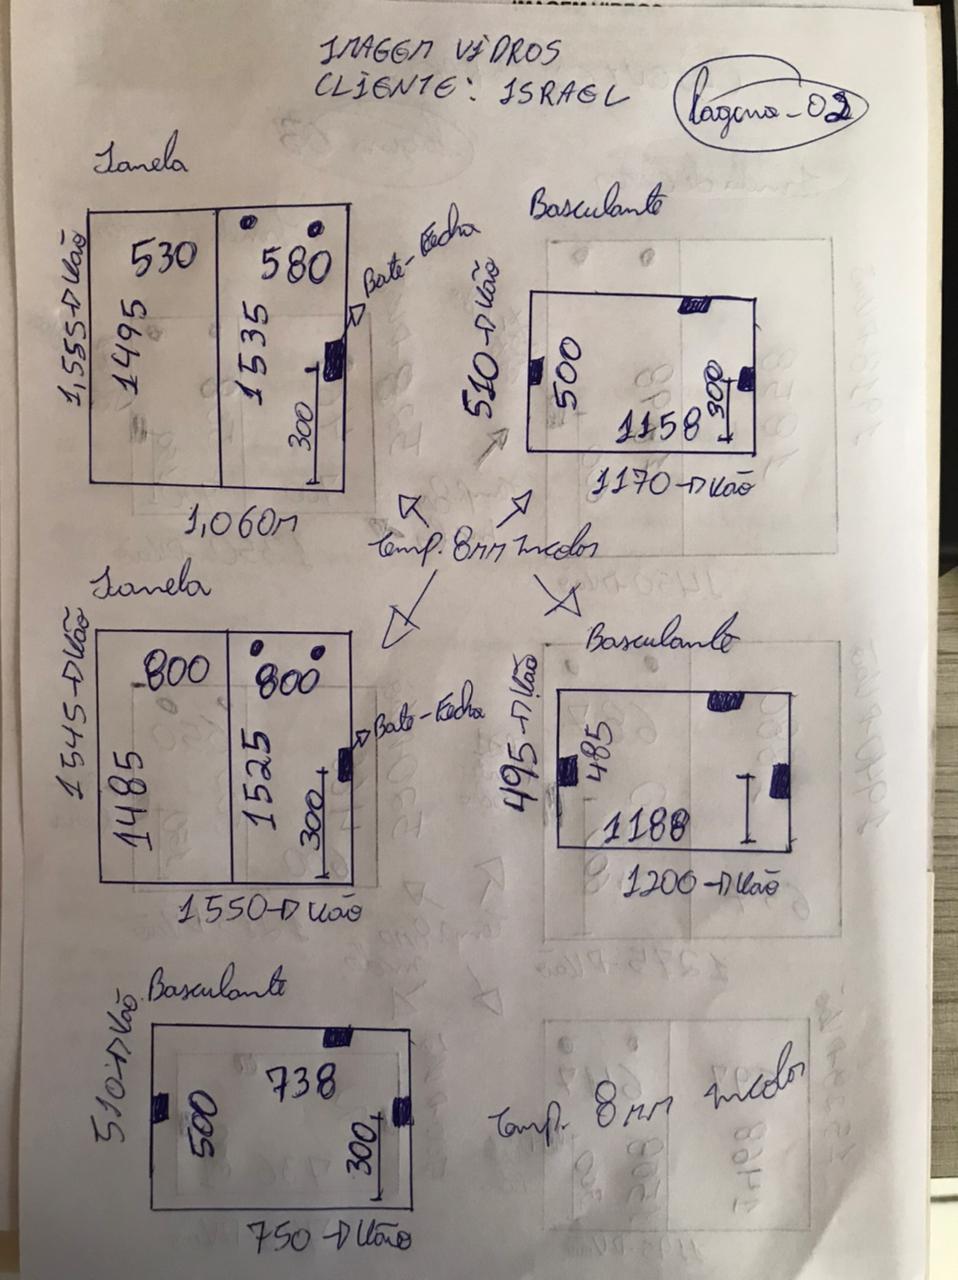 IMAGEM VIDROS
CLIENTE: ISRAEL
Pagina-02
Janela
1,555-D Vão
530
1495
580
1535
300
Bate-Fecha
1,060m
Basculante
510-D Vão
500
1158
300
1170-D Vão
Temp. 8mm Incolor
Janela
1545-D Vão
800
1485
800
1525
300
Bate-Fecha
1550-D Vão
Basculante
495-D Vão
485
1188
1200-D Vão
Basculante
510-D Vão
738
500
300
750-D Vão
Temp. 8mm Incolor